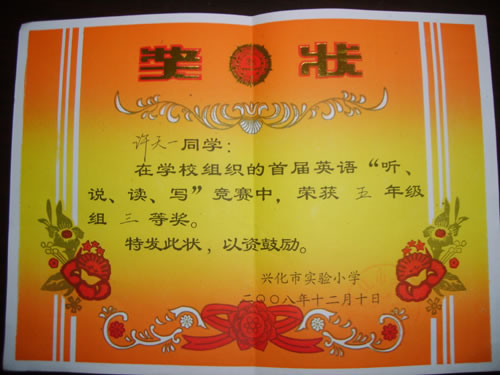 奖状
许天一同学：
在学校组织的首届英语“听、
说、读、写”竞赛中，荣获 五 年级
组 三 等奖。
特发此状，以资鼓励。
兴化市实验小学
二〇〇八年十二月十日